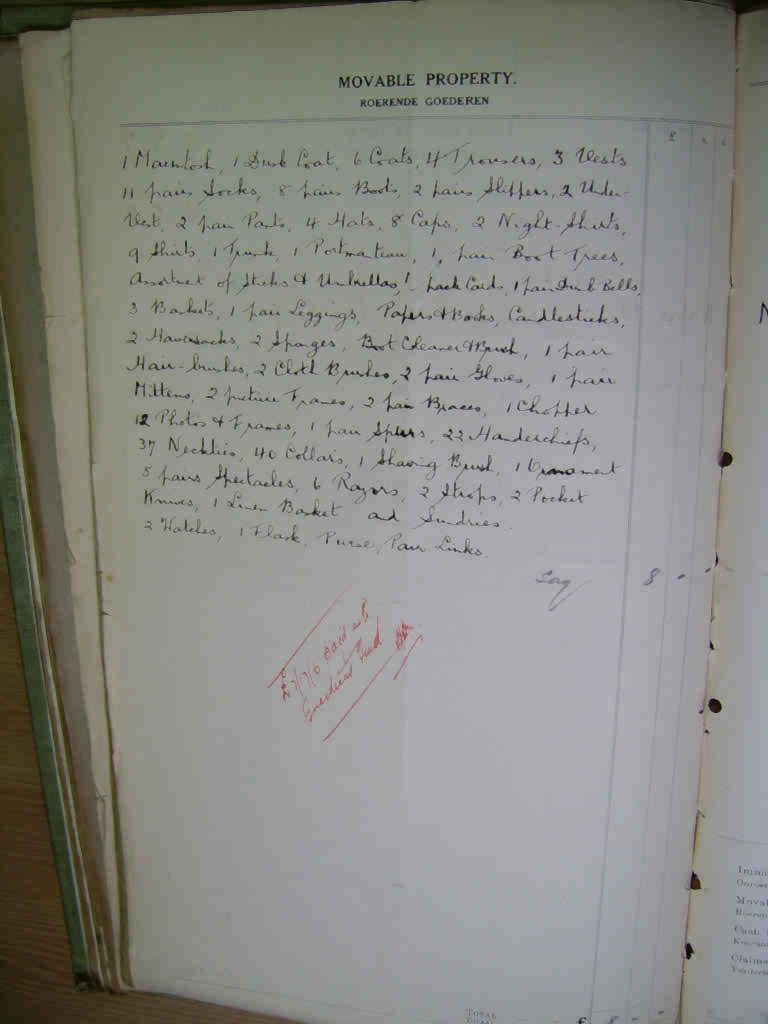 MOVABLE PROPERTY.
ROERENDE GOEDEREN
£ s d
1 Macintosh, 1 Dust Coat, 6 Coats, 4 Trousers, 3 Vests
11 pairs Socks, 8 pairs Boots, 2 pairs Slippers, 2 Under-
Vest, 2 pair Pants, 4 Hats, 8 Caps, 2 Night-Shirts,
9 Shirts, 1 Trunk, 1 Portmanteau, 1, pair Boot Trees,
Assortmet of Sticks & Umbrellas, 1 pack Cards, 1 pair Dumb Bells,
3 Baskets, 1 pair Leggings, Papers & Books, Candlesticks,
2 Haversacks, 2 Sponges, Boot Cleaner & Brush, 1 pair
Hair-brushes, 2 Cloth Brushes, 2 pair Gloves, 1 pair
Mittens, 2 picture Frames, 2 pair Braces, 1 Chopper
12 Photos & Frames, 1 pair Spurs, 22 Handerchiefs,
37 Neckties, 40 Collars, 1 Shaving Brush, 1 Ornament
5 pairs Spectacles, 6 Razors, 2 Strops, 2 Pocket
Knives, 1 Linen Basket and Sundries.
2 Watches, 1 Flask, Purse, Pair Links.
Say 8 - -
£7/7/0 paid into
Guardians Fund
TOTAL
£ 8 - -
Cash
Claims